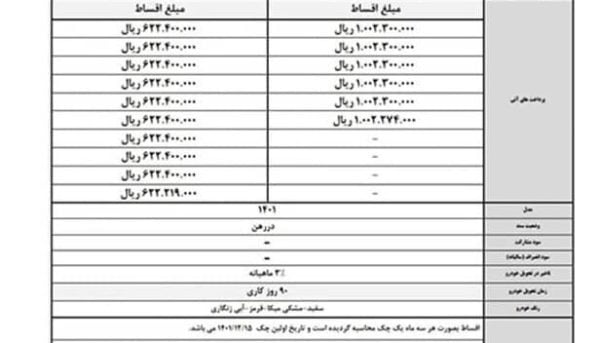 مبلغ اقساط مبلغ اقساط
۱.۰۰۲.۳۰۰.۰۰۰ ریال ۶۲۲.۴۰۰.۰۰۰ ریال
۱.۰۰۲.۳۰۰.۰۰۰ ریال ۶۲۲.۴۰۰.۰۰۰ ریال
۱.۰۰۲.۳۰۰.۰۰۰ ریال ۶۲۲.۴۰۰.۰۰۰ ریال
۱.۰۰۲.۳۰۰.۰۰۰ ریال ۶۲۲.۴۰۰.۰۰۰ ریال
پرداخت های آتی ۱.۰۰۲.۳۰۰.۰۰۰ ریال ۶۲۲.۴۰۰.۰۰۰ ریال
۱.۰۰۲.۲۷۴.۰۰۰ ریال ۶۲۲.۴۰۰.۰۰۰ ریال
- ۶۲۲.۴۰۰.۰۰۰ ریال
- ۶۲۲.۴۰۰.۰۰۰ ریال
- ۶۲۲.۴۰۰.۰۰۰ ریال
- ۶۲۲.۲۱۹.۰۰۰ ریال
مدل ۱۴۰۱
وضعیت سند دررهن
سود مشارکت -
سود انصراف (سالیانه) -
تاخیر در تحویل خودرو ۳٪ ماهیانه
زمان تحویل خودرو ۹۰ روز کاری
رنگ خودرو سفید-مشکی میکا-قرمز-آبی زنگاری
اقساط بصورت هر سه ماه یک چک محاسبه گردیده است و تاریخ اولین چک ۱۴۰۱/۱۲/۱۵ می باشد.